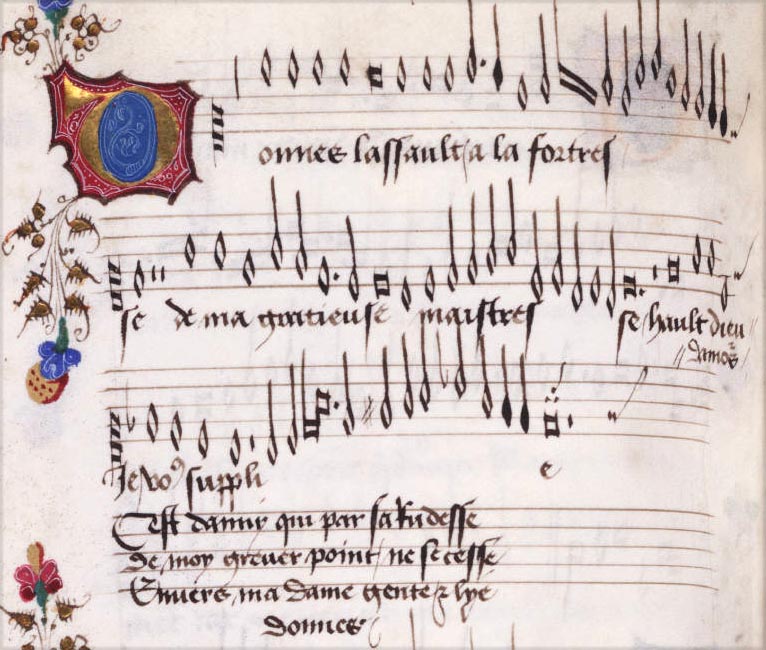 Donnes lassault a la fortres
se de ma gratieuse maistres se hault dieu
damors
Je vo⁹ suppli e
Cest qui par sa Rudesse
De moy grever point ne se cesse
Envers ma dame gente ⁊ lye
donnes